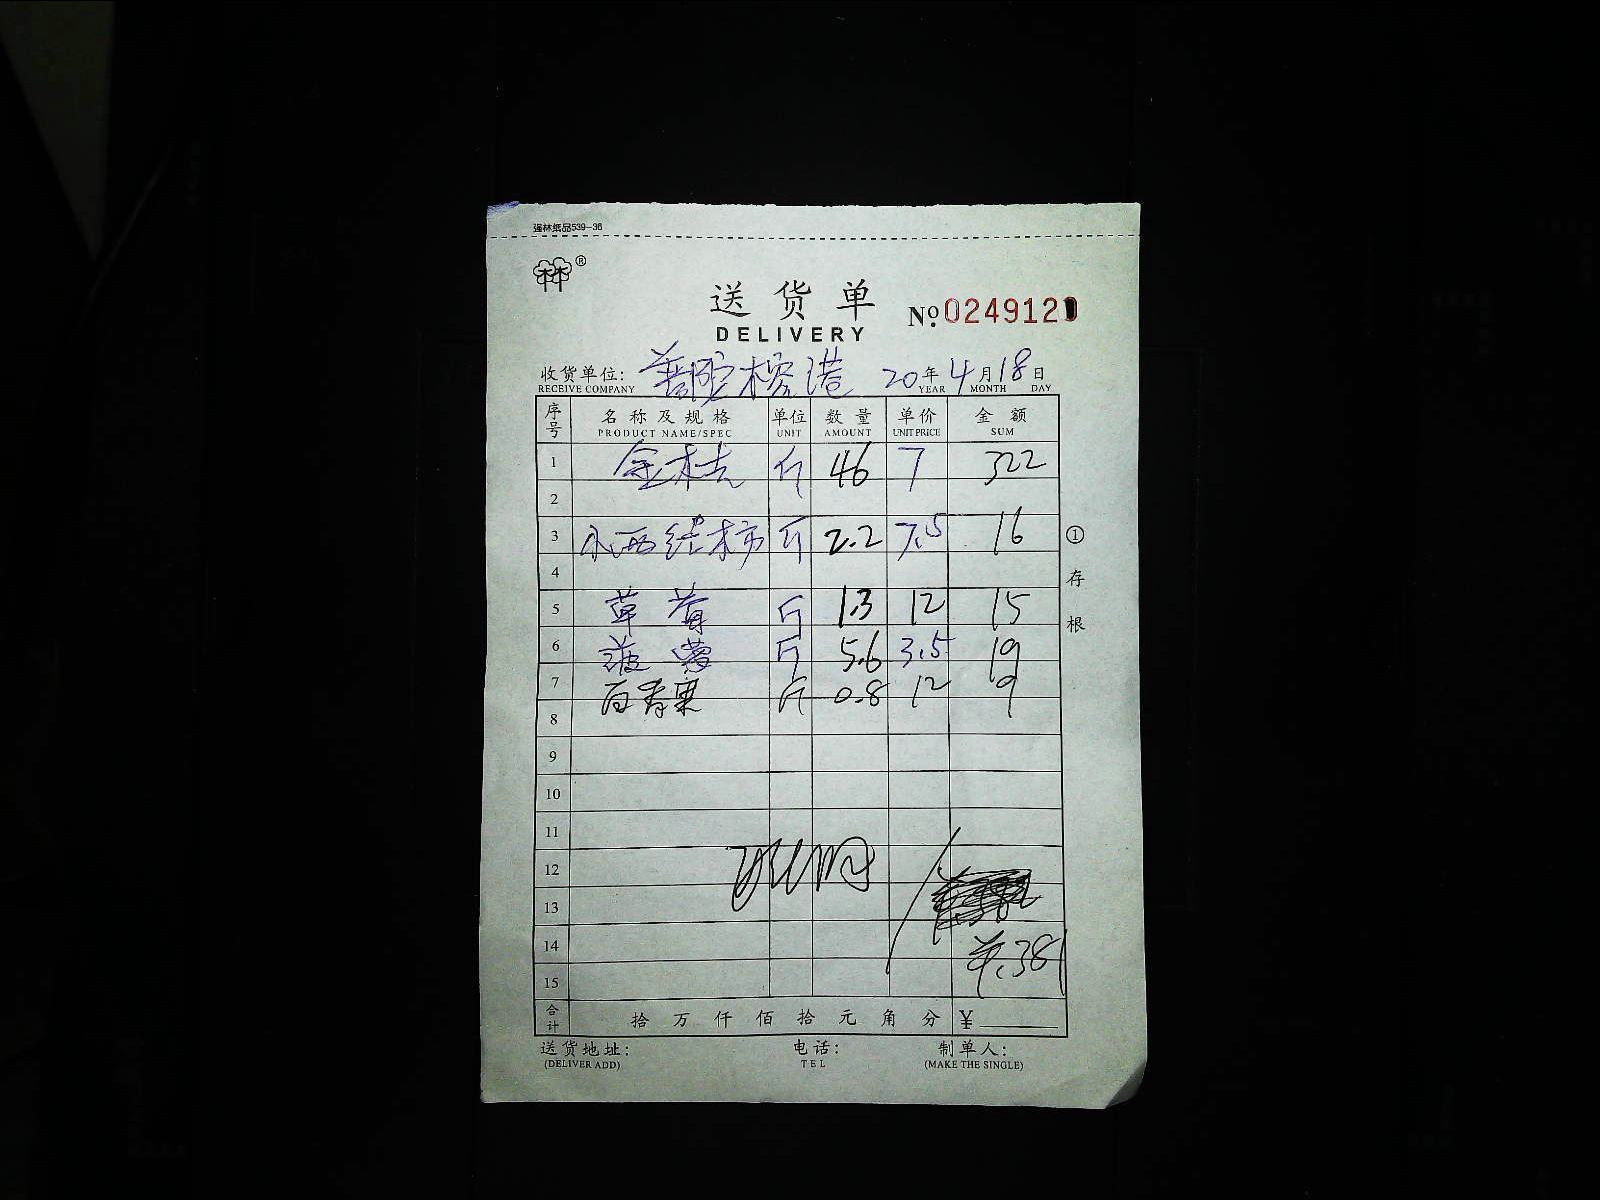 强林纸品539-36
林®
送货单 No 0249121
DELIVERY
收货单位: 普陀榕港 20年4月18日
RECEIVE COMPANY YEAR MONTH DAY
序号 名称及规格 单位 数量 单价 金额
PRODUCT NAME/SPEC UNIT AMOUNT UNIT PRICE SUM
1 金桔 斤 46 7 322
2
3 小西红柿 斤 2.2 7.5 16
4
5 草莓 斤 1.3 12 15
6 菠萝 斤 5.6 3.5 19
7 百香果 斤 0.8 12 9
8
9
10
11
12
13
14 ¥.381
15
合计 拾万仟佰拾元角分 ¥
送货地址: 电话: 制单人:
(DELIVER ADD) TEL (MAKE THE SINGLE)
①存根